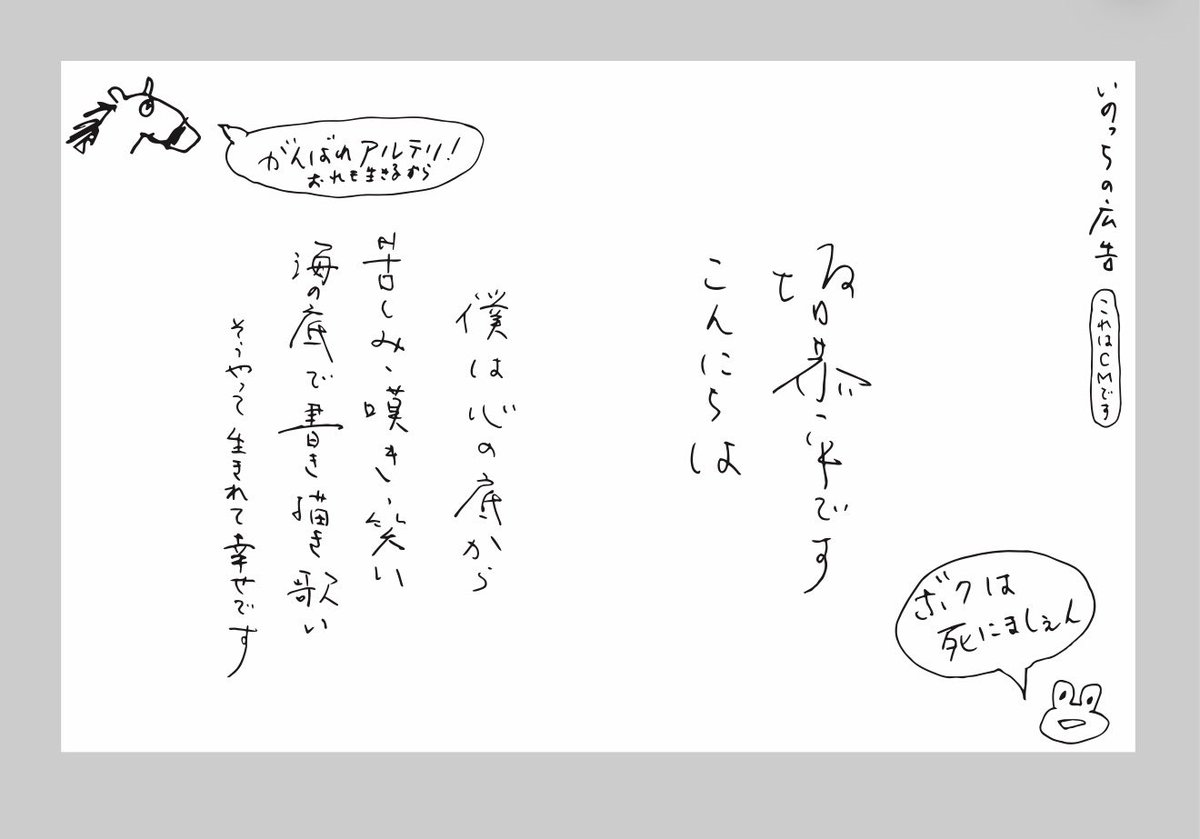 いのっちの広告
これはCMです
坂口恭平です
こんにちは
僕は心の底から
苦しみ、嘆き、笑い
海の底で書き描き歌い
そうやって生きれて幸せです
がんばれアルテリ!
おれも生きるから
ボクは
死にましぇん